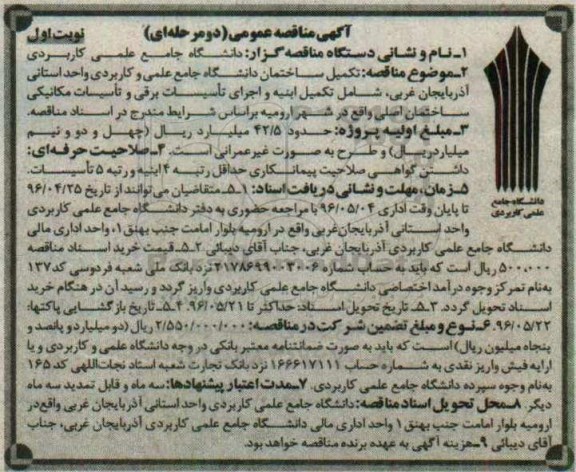 آگهی مناقصه عمومی (دو مرحله‌ای)
نوبت اول
۱ـ نام و نشانی دستگاه مناقصه گزار: دانشگاه جامع علمی کاربردی
۲ـ موضوع مناقصه: تکمیل ساختمان دانشگاه جامع علمی و کاربردی واحد استانی
آذربایجان غربی، شامل تکمیل ابنیه و اجرای تأسیسات برقی و تأسیسات مکانیکی
ساختمان اصلی واقع در شهر ارومیه براساس شرایط مندرج در اسناد مناقصه.
۳ـ مبلغ اولیه پروژه: حدود ۴۲/۵ میلیارد ریال (چهل و دو و نیم
میلیارد ریال) و طرح به صورت غیرعمرانی است. ۴ـ صلاحیت حرفه‌ای:
داشتن گواهی صلاحیت پیمانکاری حداقل رتبه ۴ ابنیه و رتبه ۵ تأسیسات.
۵ـ زمان، مهلت و نشانی دریافت اسناد: ۱ـ۵ـ متقاضیان می‌توانند از تاریخ ۹۶/۰۴/۲۵
تا پایان وقت اداری ۹۶/۰۵/۰۴ با مراجعه حضوری به دفتر دانشگاه جامع علمی کاربردی
واحد استانی آذربایجان‌غربی واقع در ارومیه بلوار امامت جنب بهنق ۱، واحد اداری مالی
دانشگاه جامع علمی کاربردی
دانشگاه جامع علمی کاربردی آذربایجان غربی، جناب آقای دیبائی ۲ـ۵ـ قیمت خرید اسناد مناقصه
۵۰۰،۰۰۰ ریال است که باید به حساب شماره ۲۱۷۸۶۹۹۰۰۳۰۰۶ نزد بانک ملی شعبه فردوسی کد ۱۳۷
به‌نام تمرکز وجوه درآمد اختصاصی دانشگاه جامع علمی کاربردی واریز گردد و رسید آن در هنگام خرید
اسناد تحویل گردد. ۳ـ۵ـ تاریخ تحویل اسناد: حداکثر تا ۹۶/۰۵/۲۱. ۴ـ۵ـ تاریخ بازگشایی پاکتها:
۹۶/۰۵/۲۲. ۶ـ نوع و مبلغ تضمین شرکت در مناقصه: ۲/۵۵۰/۰۰۰/۰۰۰ ریال (دو میلیارد و پانصد و
پنجاه میلیون ریال) است که باید به صورت ضمانتنامه معتبر بانکی در وجه دانشگاه علمی و کاربردی و یا
ارایه فیش واریز نقدی به شماره حساب ۱۶۶۶۱۷۱۱۱ نزد بانک تجارت شعبه استاد نجات‌اللهی کد ۱۶۵
به‌نام وجوه سپرده دانشگاه جامع علمی کاربردی. ۷ـ مدت اعتبار پیشنهادها: سه ماه و قابل تمدید سه ماه
دیگر. ۸ـ محل تحویل اسناد مناقصه: دانشگاه جامع علمی کاربردی واحد استانی آذربایجان غربی واقع‌در
ارومیه بلوار امامت جنب بهنق ۱ واحد اداری مالی دانشگاه جامع علمی کاربردی آذربایجان غربی، جناب
آقای دیبائی ۹ـ هزینه آگهی به عهده برنده مناقصه خواهد بود.